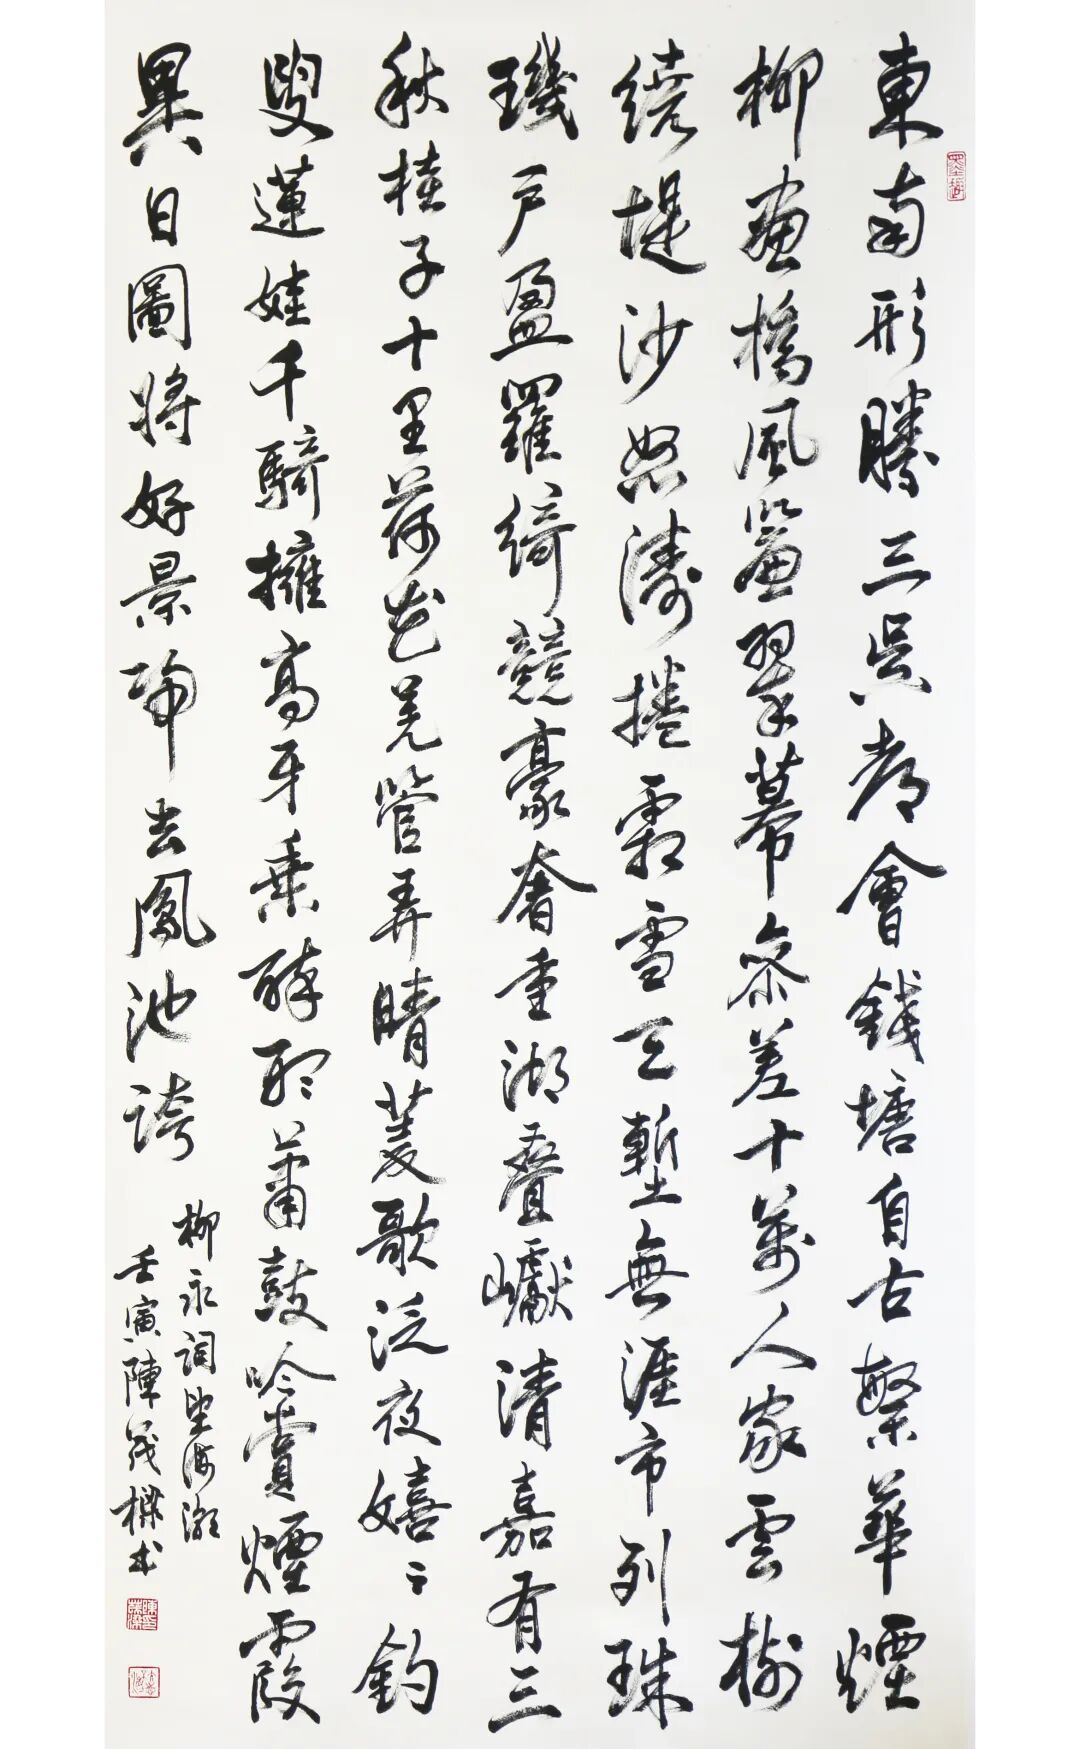 東南形勝三吳都會錢塘自古繁華煙
柳畫橋風簾翠幕參差十萬人家雲樹
繞堤沙怒濤捲霜雪天塹無涯市列珠
璣戶盈羅綺競豪奢重湖疊巘清嘉有三
秋桂子十里荷花羌管弄晴菱歌泛夜嬉嬉釣
叟蓮娃千騎擁高牙乘醉聽簫鼓吟賞煙霞
異日圖將好景歸去鳳池誇
柳永詞望海潮
壬寅陳茂樑書